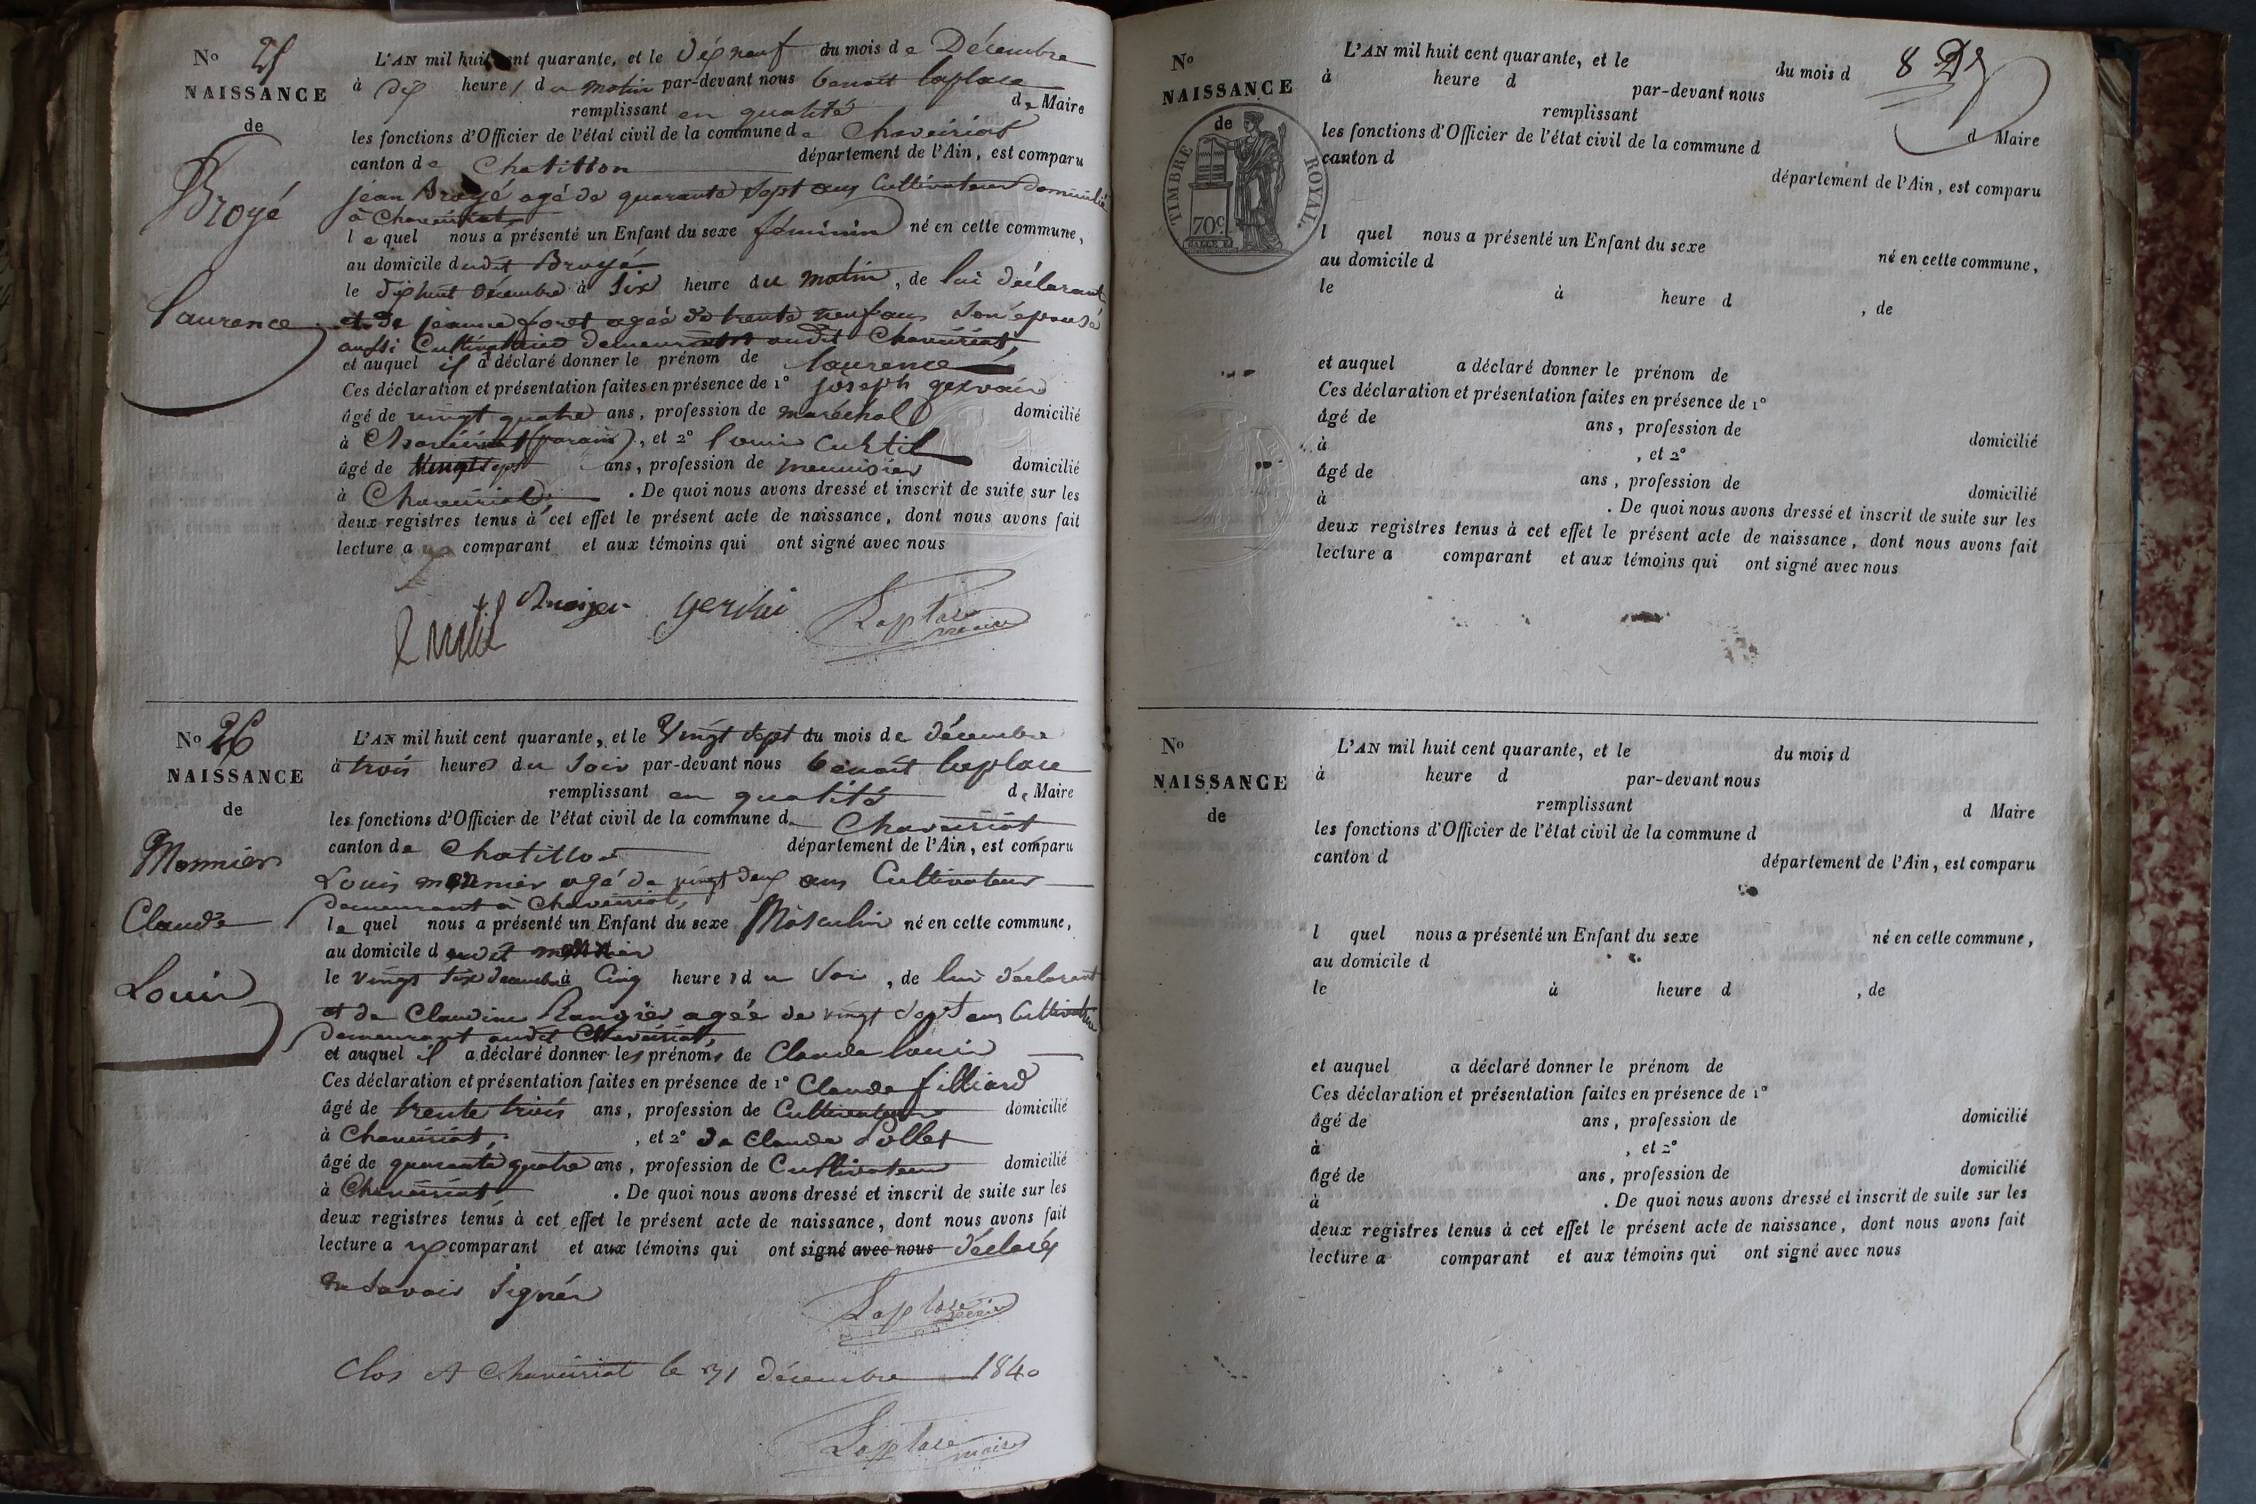 No 25
NAISSANCE
de
Broyé
laurence
L'AN mil huit cent quarante, et le dix neuf du mois de Décembre
à dix heures du matin par-devant nous benoit laplace
remplissant en qualité de Maire
les fonctions d'Officier de l'état civil de la commune de Chaveiriat
canton de Chatillon département de l'Ain, est comparu
jean Broyé agé de quarante sept ans Cultivateur domicilié
à Chaveiriat
lequel nous a présenté un Enfant du sexe féminin né en cette commune,
au domicile dudit Broyé
le dix huit décembre à six heure du matin, de lui déclarant
et de jeanne foret agée de trente neuf ans son épouse
aussi Cultivatrice demeurant audit Chaveiriat,
et auquel il a déclaré donner le prénom de laurence
Ces déclaration et présentation faites en présence de 1° joseph gervais
âgé de vingt quatre ans, profession de maréchal domicilié
à Chaveiriat (parain), et 2° louis curtil
âgé de vingt sept ans, profession de menuisier domicilié
à Chaveiriat, . De quoi nous avons dressé et inscrit de suite sur les
deux registres tenus à cet effet le présent acte de naissance, dont nous avons fait
lecture au comparant et aux témoins qui ont signé avec nous
Laplace
maire
No 26
NAISSANCE
de
Monnier
Claude
Louis
L'AN mil huit cent quarante, et le Vingt sept du mois de décembre
à trois heures du soir par-devant nous benoit laplace
remplissant en qualité de Maire
les fonctions d'Officier de l'état civil de la commune de Chaveiriat
canton de Chatillon département de l'Ain, est comparu
Louis monnier agé de vingt deux ans Cultivateur
demeurant à Chaveiriat,
lequel nous a présenté un Enfant du sexe Masculin né en cette commune,
au domicile dudit monnier
le vingt six décembre à Cinq heures du soir, de lui déclarant
et de Claudine agée de vingt sept ans Cultivatrice
demeurant audit Chaveiriat,
et auquel il a déclaré donner les prénoms de Claude louis
Ces déclaration et présentation faites en présence de 1° Claude filliard
âgé de trente trois ans, profession de Cultivateur domicilié
à Chaveiriat, , et 2° de Claude Pollet
âgé de quarante quatre ans, profession de Cultivateur domicilié
à Chaveiriat . De quoi nous avons dressé et inscrit de suite sur les
deux registres tenus à cet effet le présent acte de naissance, dont nous avons fait
lecture au comparant et aux témoins qui ont signé avec nous déclaré
ne savoir signer
Laplace
maire
Clos A Chaveiriat le 31 décembre 1840
Laplace
maire
No
NAISSANCE
de
TIMBRE ROYAL.
70c.
8
L'AN mil huit cent quarante, et le du mois d
à heure d par-devant nous
remplissant d Maire
les fonctions d'Officier de l'état civil de la commune d
canton d département de l'Ain, est comparu
l quel nous a présenté un Enfant du sexe né en cette commune,
au domicile d
le à heure d , de
et auquel a déclaré donner le prénom de
Ces déclaration et présentation faites en présence de 1°
âgé de ans, profession de domicilié
à , et 2°
âgé de ans, profession de domicilié
à . De quoi nous avons dressé et inscrit de suite sur les
deux registres tenus à cet effet le présent acte de naissance, dont nous avons fait
lecture a comparant et aux témoins qui ont signé avec nous
No
NAISSANCE
de
L'AN mil huit cent quarante, et le du mois d
à heure d par-devant nous
remplissant d Maire
les fonctions d'Officier de l'état civil de la commune d
canton d département de l'Ain, est comparu
l quel nous a présenté un Enfant du sexe né en cette commune,
au domicile d
le à heure d , de
et auquel a déclaré donner le prénom de
Ces déclaration et présentation faites en présence de 1°
âgé de ans, profession de domicilié
à , et 2°
âgé de ans, profession de domicilié
à . De quoi nous avons dressé et inscrit de suite sur les
deux registres tenus à cet effet le présent acte de naissance, dont nous avons fait
lecture a comparant et aux témoins qui ont signé avec nous